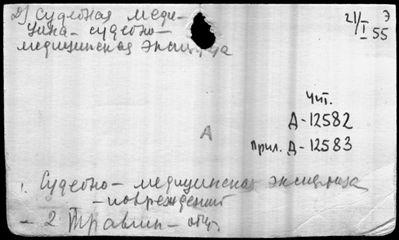 2) Судебная меди-
цина - судебно-
медицинская
21/I 55
Э
Чит.
Д-12582
Прил. Д-12583
А
1. Судебно-медицинская экспертиза
- повреждений
- 2 Травмы - общ.